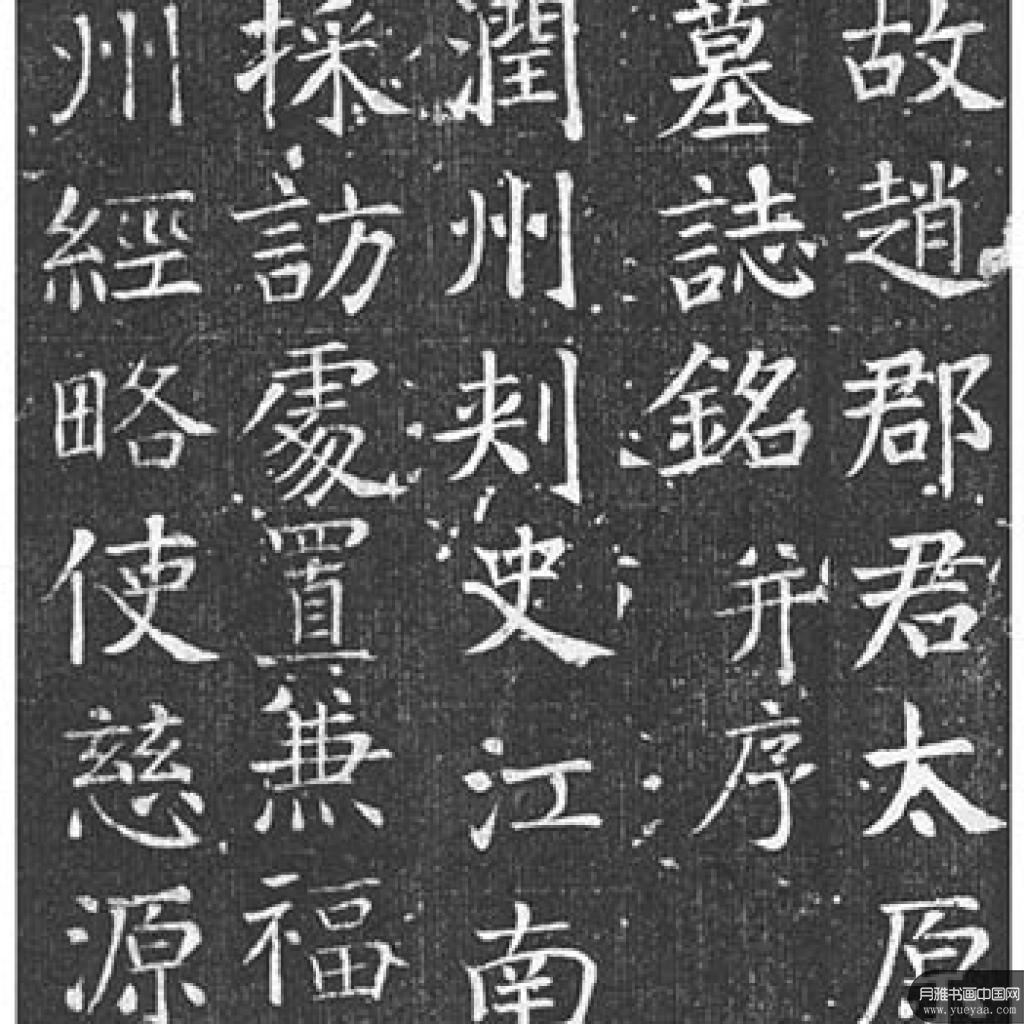 故趙郡君太原
墓誌銘并序
潤州刺史江南
採訪處置兼福
州經略使慈源
月雅书画中国网
www.yueyaa.com